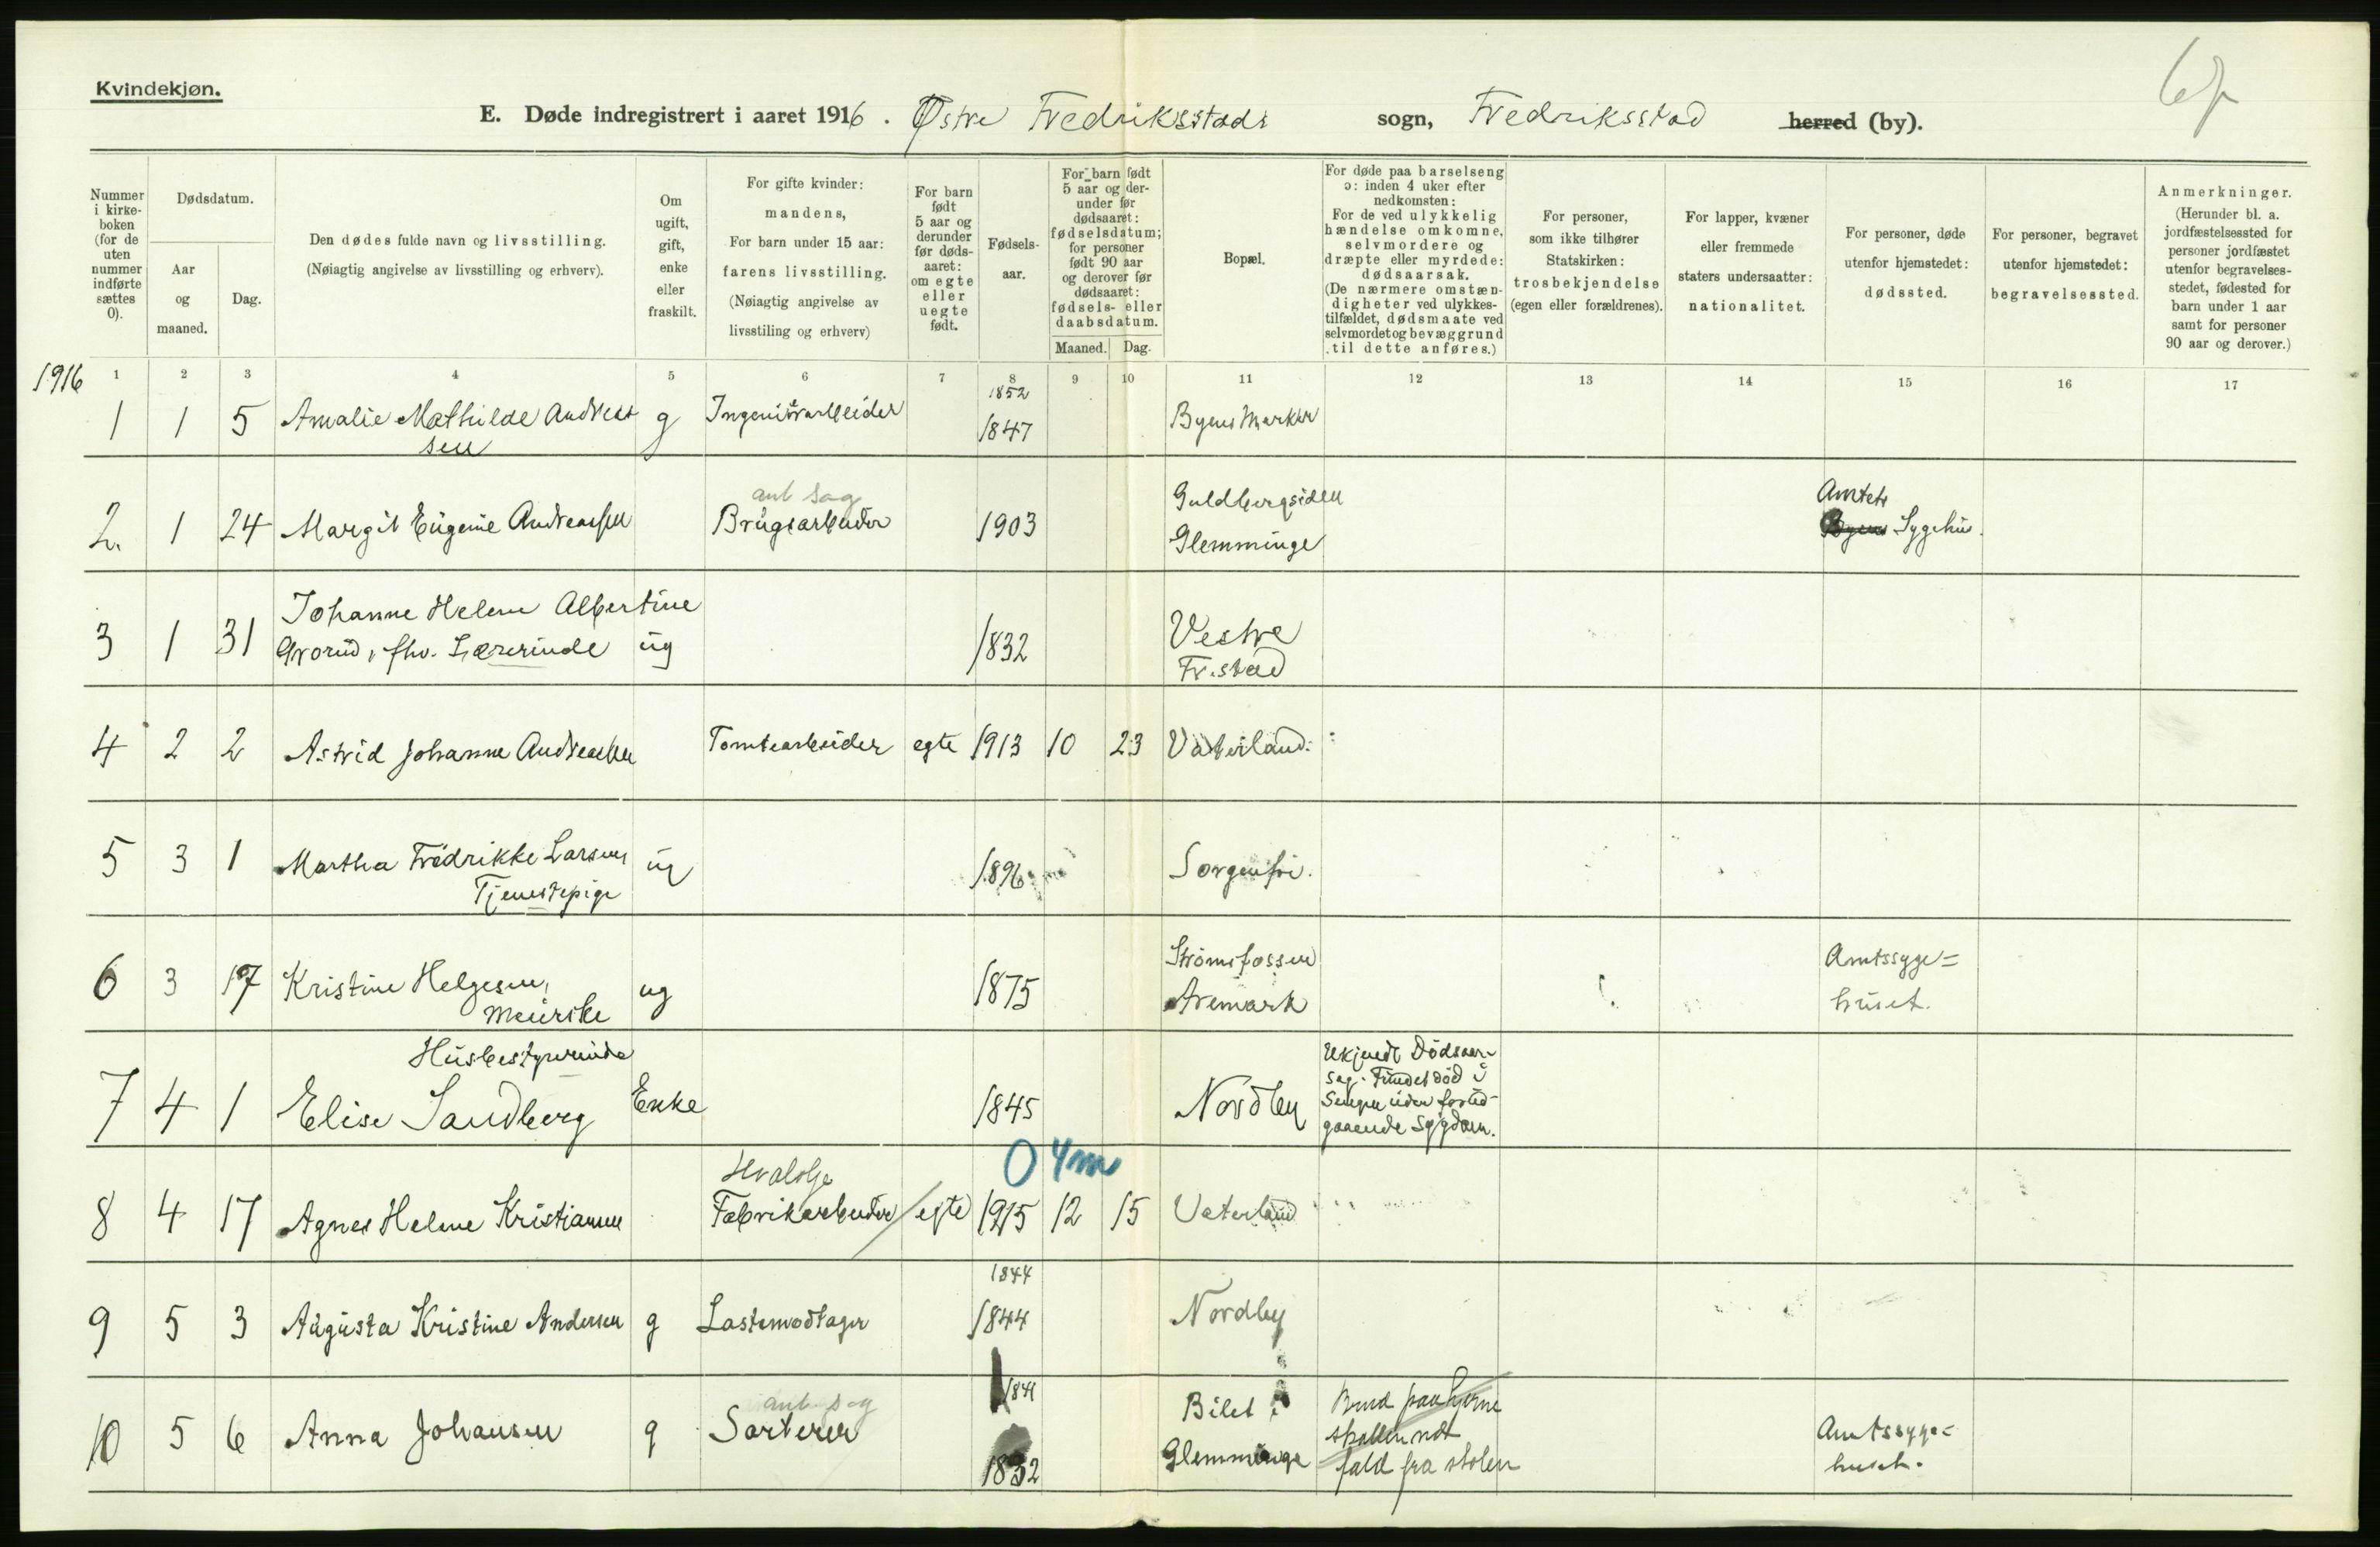 Kvindekjøn.
E. Døde indregistrert i aaret 1916. Østre Fredriksstads sogn, Fredriksstad herred (by).
Nummer i kirke-boken (for de uten nummer indførte sættes 0).
Dødsdatum.
Aar og maaned.
Dag.
Den dødes fulde navn og livsstilling.
(Nøiagtig angivelse av livsstilling og erhverv).
Om ugift, gift, enke eller fraskilt.
For gifte kvinder: mandens,
For barn under 15 aar: farens livsstilling.
(Nøiagtig angivelse av livsstiling og erhverv)
For barn født 5 aar og derunder før døds-aaret: om egte eller uegte født.
Fødsels-aar.
For barn født 5 aar og der-under før dødsaaret: fødselsdatum; for personer født 90 aar og derover før dødsaaret: fødsels- eller daabsdatum.
Maaned. Dag.
Bopæl.
For døde paa barselseng ɔ: inden 4 uker efter nedkomsten:
For de ved ulykkelig hændelse omkomne, selvmordere og dræpte eller myrdede: dødsaarsak.
(De nærmere omstæn-digheter ved ulykkes-tilfældet, dødsmaate ved selvmordet og bevæggrund til dette anføres.)
For personer, som ikke tilhører Statskirken: trosbekjendelse (egen eller forældrenes).
For lapper, kvæner eller fremmede staters undersaatter: nationalitet.
For personer, døde utenfor hjemstedet: dødssted.
For personer, begravet utenfor hjemstedet: begravelsessted.
Anmerkninger.
(Herunder bl. a. jordfæstelsessted for personer jordfæstet utenfor begravelses-stedet, fødested for barn under 1 aar samt for personer 90 aar og derover.)
1916
1 2 3 4 5 6 7 8 9 10 11 12 13 14 15 16 17
1852
1 1 5 Amalie Mathilde Andreas g Ingeniørarbeider 1847 Byens Marker
sen
ant sag Guldbergsiden Amtets
2. 1 24 Margit Eugenie Andreassen Brugsarbeider 1903 Glemminge Byens Sygehus.
Johanne Helene Albertine Vestre
3 1 31 Grorud, fhv. Lærerinde ug 1832 Fr.stad
4 2 2 Astrid Johanne Andreassen Tomtearbeider egte 1913 10 23 Vaterland.
5 3 1 Martha Fredrikke Larsen ug 1896 Sorgenfri.
Tjenestepige
Strømsfossen Amtssyge=
6 3 17 Kristine Helgesen, ug 1875 Aremark huset.
Meierske
Husbestyrerinde Ukjendt Dødsaar-
sag. Fundet død i
7 4 1 Elise Sandberg Enke 1845 Nordby Sengen uden forud-
gaaende Sygdom.
0 4m
Hvalolje
8 4 17 Agnes Helene Kristiansen Fabrikarbeider egte 1915 12 15 Vaterland
1844
9 5 3 Augusta Kristine Andersen g Lastemodtager 1844 Nordby
ant sag 1841 Bilet i Brud paa hjerne
10 5 6 Anna Johansen g Sorterer 1832 Glemminge skallen ved Amtssyge=
fald fra stolen huset.